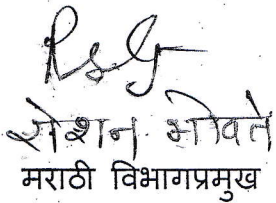 रोशन भोवते
मराठी विभागप्रमुख